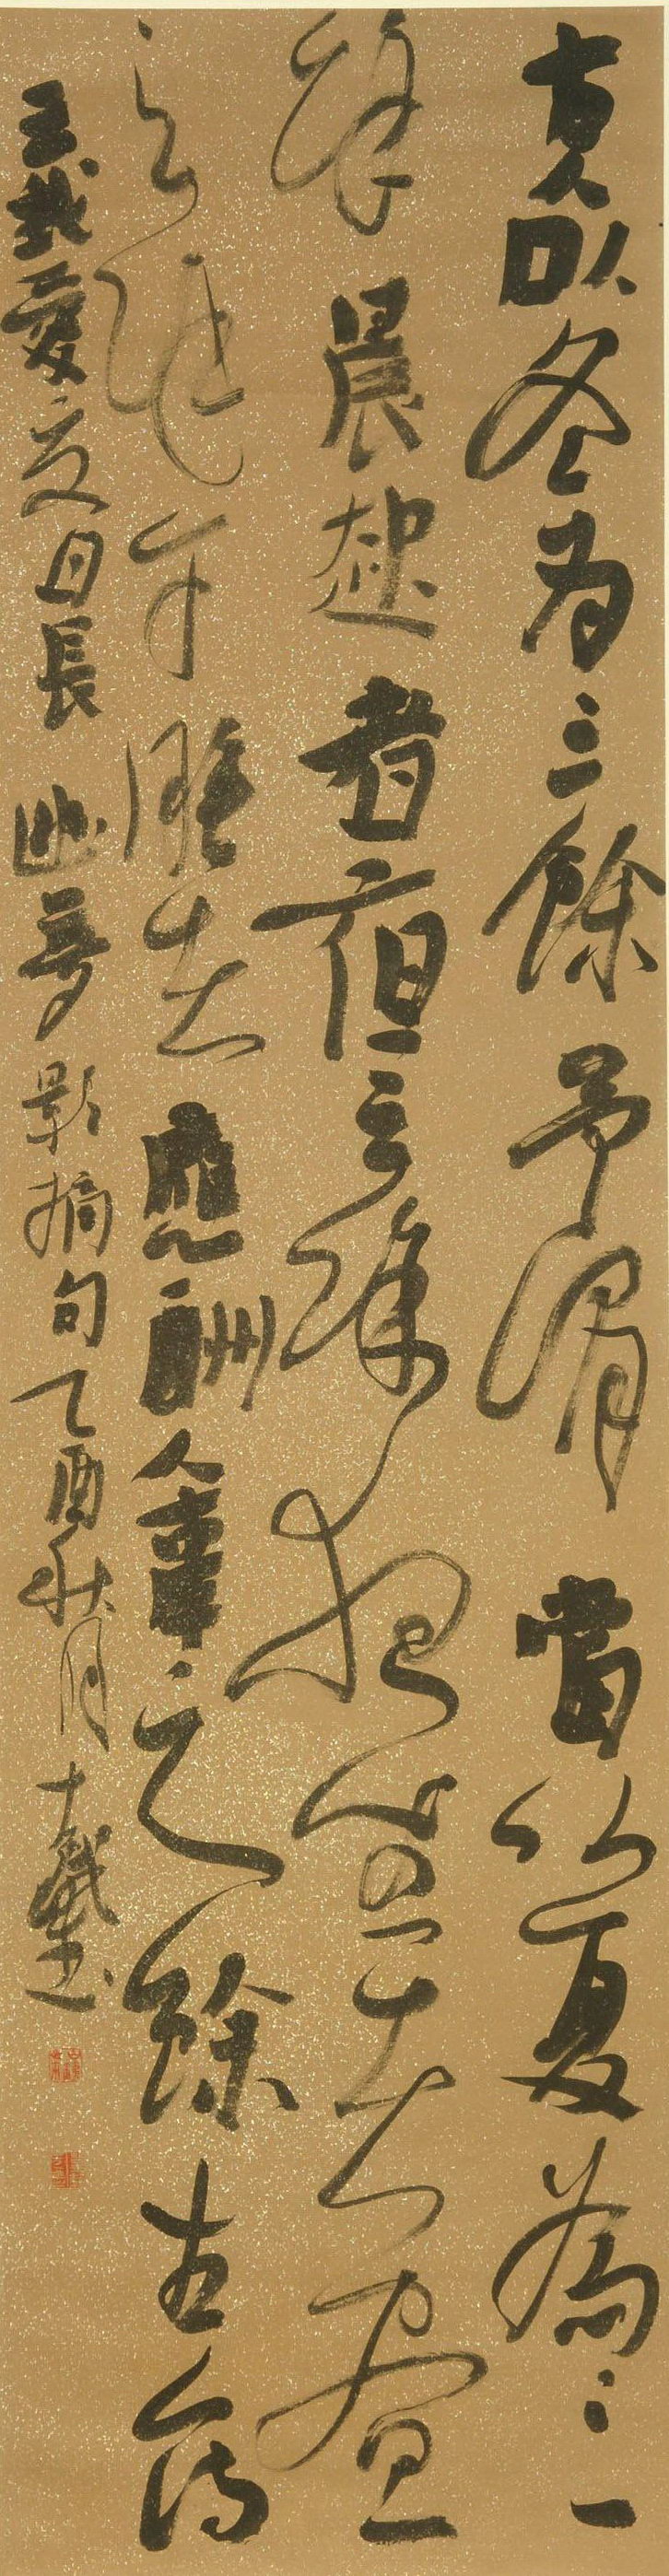 古人以冬為三餘予謂當以夏為三
餘晨起者夜之餘夜坐者晝
之餘午睡者應酬人事之餘古人詩
云我愛夏日長 幽夢影摘句乙酉秋月